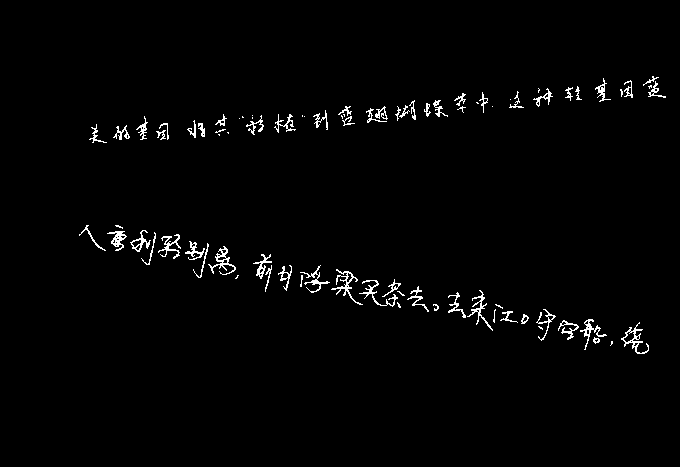 关的基因将其“移植”到蓝翅蝴蝶草中.这种转基因蓝
人重利轻别离,前月浮梁买茶去。去来江口守空船,绕